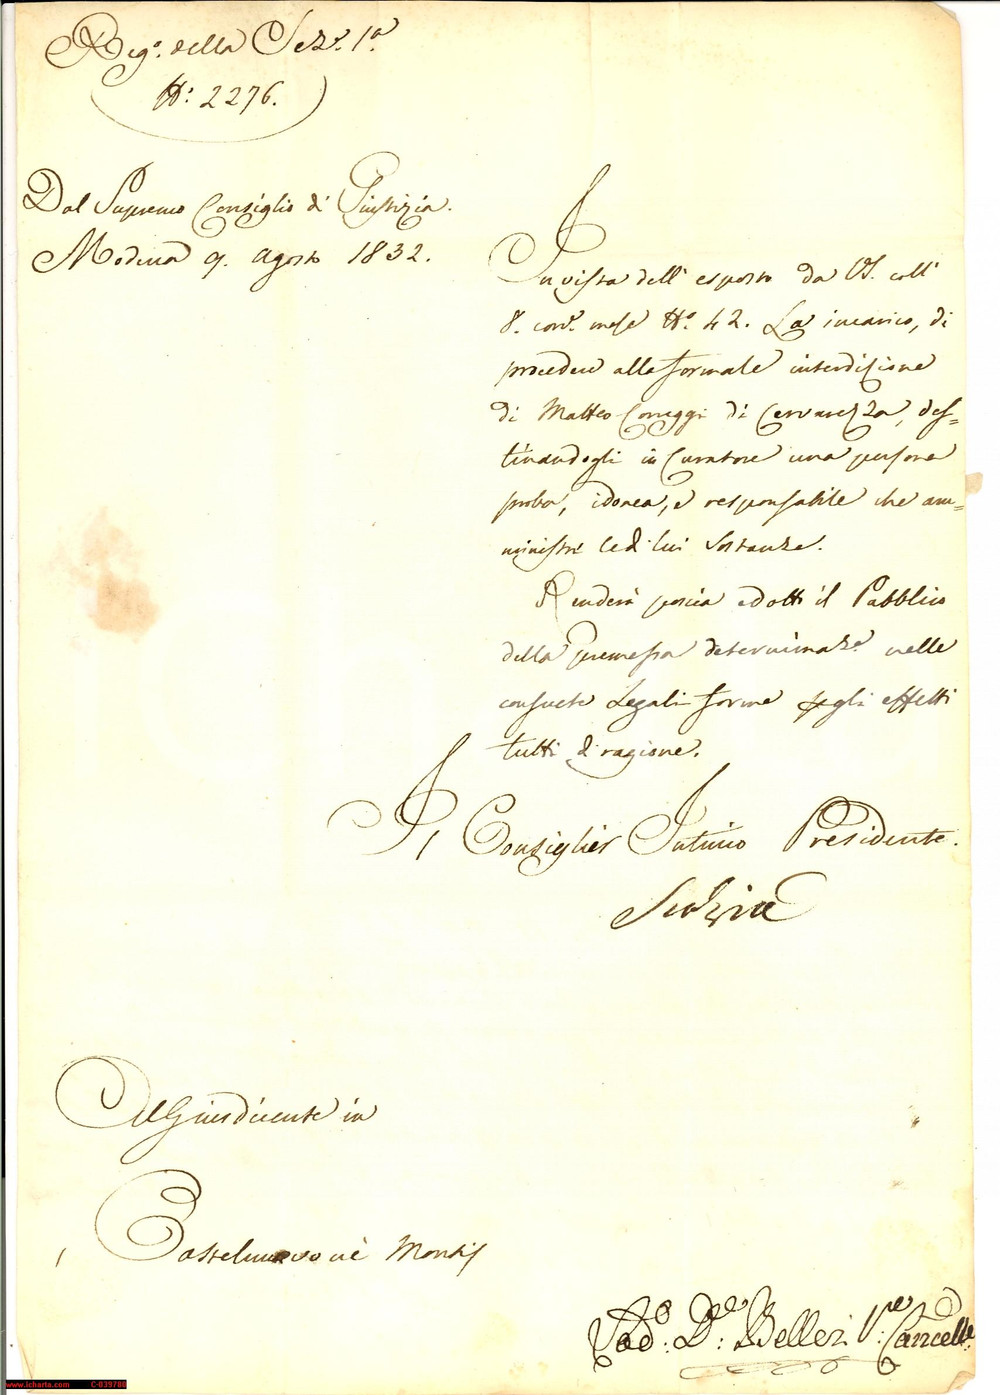 Reg.º della Sez.e 1.a
N.º 2276.
Dal Supremo Consiglio di Giustizia.
Modena 9. Agosto 1832.
In vista dell' esposto da VS. coll'
8. corr.e mese N.º 42. La incarico, di
procedere alla formale interdizione
di Matteo Correggi di Cervarezza, des=
tinandogli in Curatore una persona
proba, idonea, e responsabile che am=
ministri le di lui Sostanze.
Renderà poscia edotto il Pubblico
della premessa determinaz.e nelle
consuete Legali forme per gli effetti
tutti di ragione.
Il Consiglier Intimo Presidente.
Al Giusdicente in
Castelnuovo né Monti
D.r Belleri V.e Cancell.e
www.icharta.com C-039780